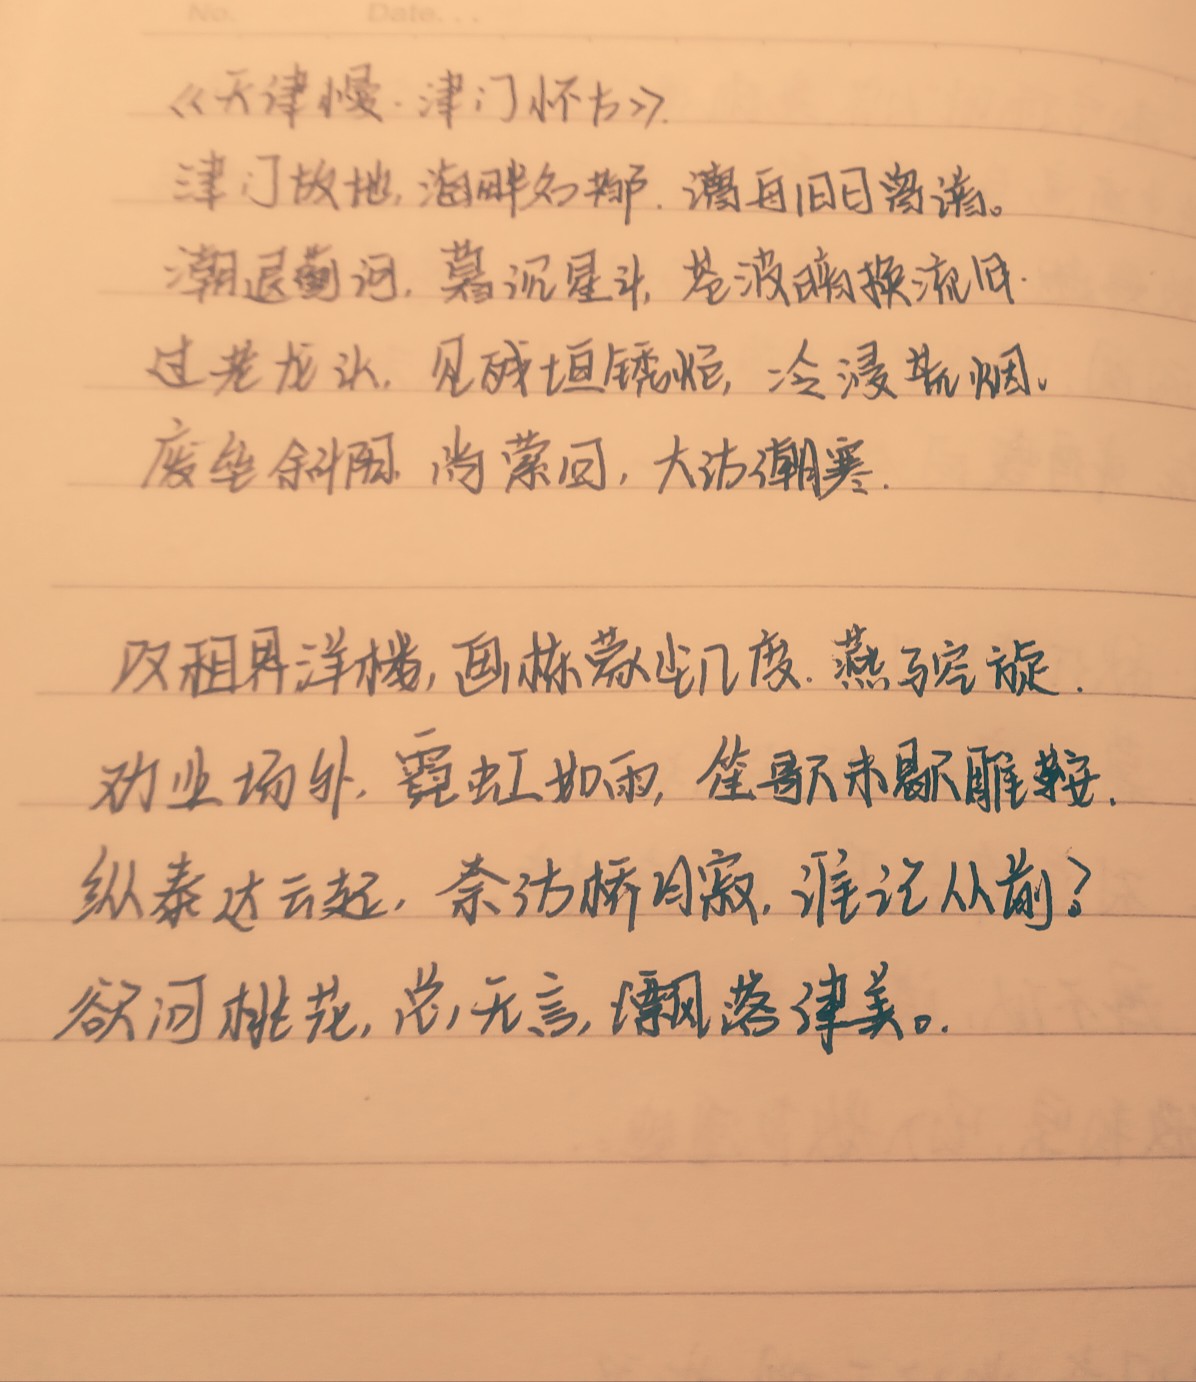 No. Date...
《天津慢·津门怀古》
津门故地,海畔名都.漕舟旧日
潮退蓟河,暮沉星斗,苍波暗换流
过老龙头,见残垣锈炮,冷浸荒烟。
废垒斜阳 尚萦回,大沽潮寒.
叹租界洋楼,画栋蒙尘几度.燕马空旋.
劝业场外,霓虹如雨,笙歌未歇雕鞍.
纵泰达云起,奈沽桥月寂,谁记从前?
河桃花,总无言,飘落津美。